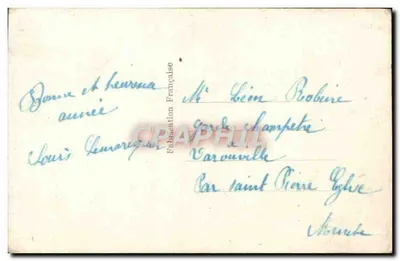 Bonne et heureuse
année
Louis
Fabrication Française
CPAPHIL
Mr Léon Robine
garde champetre
à
Varouville
Par saint Pierre Eglise
Manche